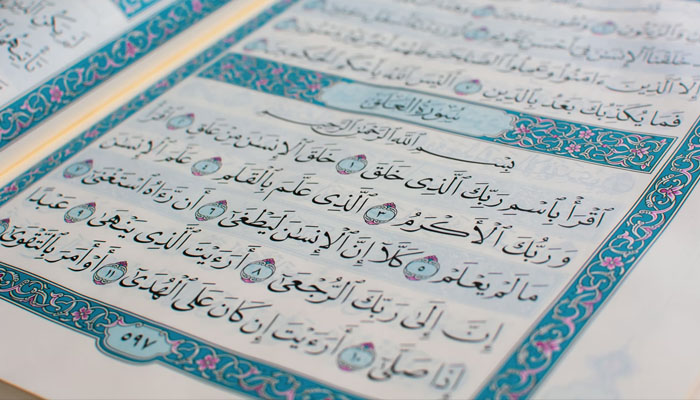 وَٱلزَّيۡتُونِ
خَلَقۡنَا ٱلۡإِنسَٰنَ فِيٓ أَحۡسَنِ
إِلَّا ٱلَّذِينَ ءَامَنُواْ وَعَمِلُواْ ٱلصَّٰلِحَٰتِ
فَمَا يُكَذِّبُكَ بَعۡدُ بِٱلدِّينِ ٧ أَلَيۡسَ ٱللَّهُ بِأَحۡكَمِ ٱلۡحَٰكِمِينَ
سُورَةُ العَلَقِ
بِسۡمِ ٱللَّهِ ٱلرَّحۡمَٰنِ ٱلرَّحِيمِ
ٱقۡرَأۡ بِٱسۡمِ رَبِّكَ ٱلَّذِي خَلَقَ ١ خَلَقَ ٱلۡإِنسَٰنَ مِنۡ عَلَقٍ ٢ ٱقۡرَأۡ
وَرَبُّكَ ٱلۡأَكۡرَمُ ٣ ٱلَّذِي عَلَّمَ بِٱلۡقَلَمِ ٤ عَلَّمَ ٱلۡإِنسَٰنَ
مَا لَمۡ يَعۡلَمۡ ٥ كَلَّآ إِنَّ ٱلۡإِنسَٰنَ لَيَطۡغَىٰٓ ٦ أَن رَّءَاهُ ٱسۡتَغۡنَىٰٓ ٧
إِنَّ إِلَىٰ رَبِّكَ ٱلرُّجۡعَىٰٓ ٨ أَرَءَيۡتَ ٱلَّذِي يَنۡهَىٰ ٩ عَبۡدًا
إِذَا صَلَّىٰٓ ١٠ أَرَءَيۡتَ إِن كَانَ عَلَى ٱلۡهُدَىٰٓ ١١ أَوۡ أَمَرَ بِٱلتَّقۡوَىٰٓ
٥٩٧